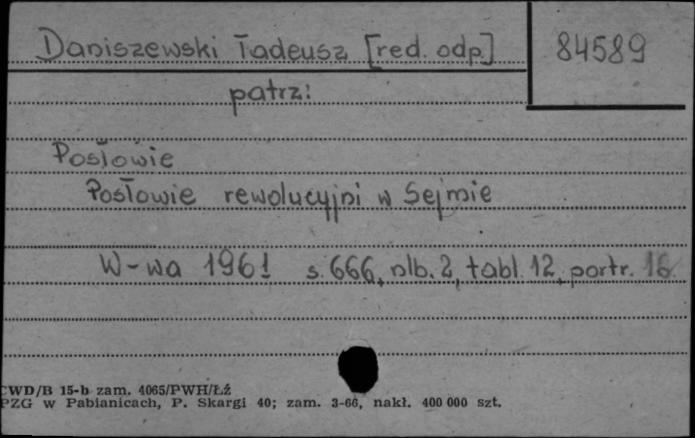 Daniszewski Tadeusz [red. odp.]
84589
patrz:
Posłowie
Posłowie rewolucyjni w Sejmie
W-wa 1961 s. 666, nlb. 2, tabl. 12, portr. 16
CWD/B 15-b zam. 4065/PWH/Łź
PZG w Pabianicach, P. Skargi 40; zam. 3-66, nakł. 400 000 szt.